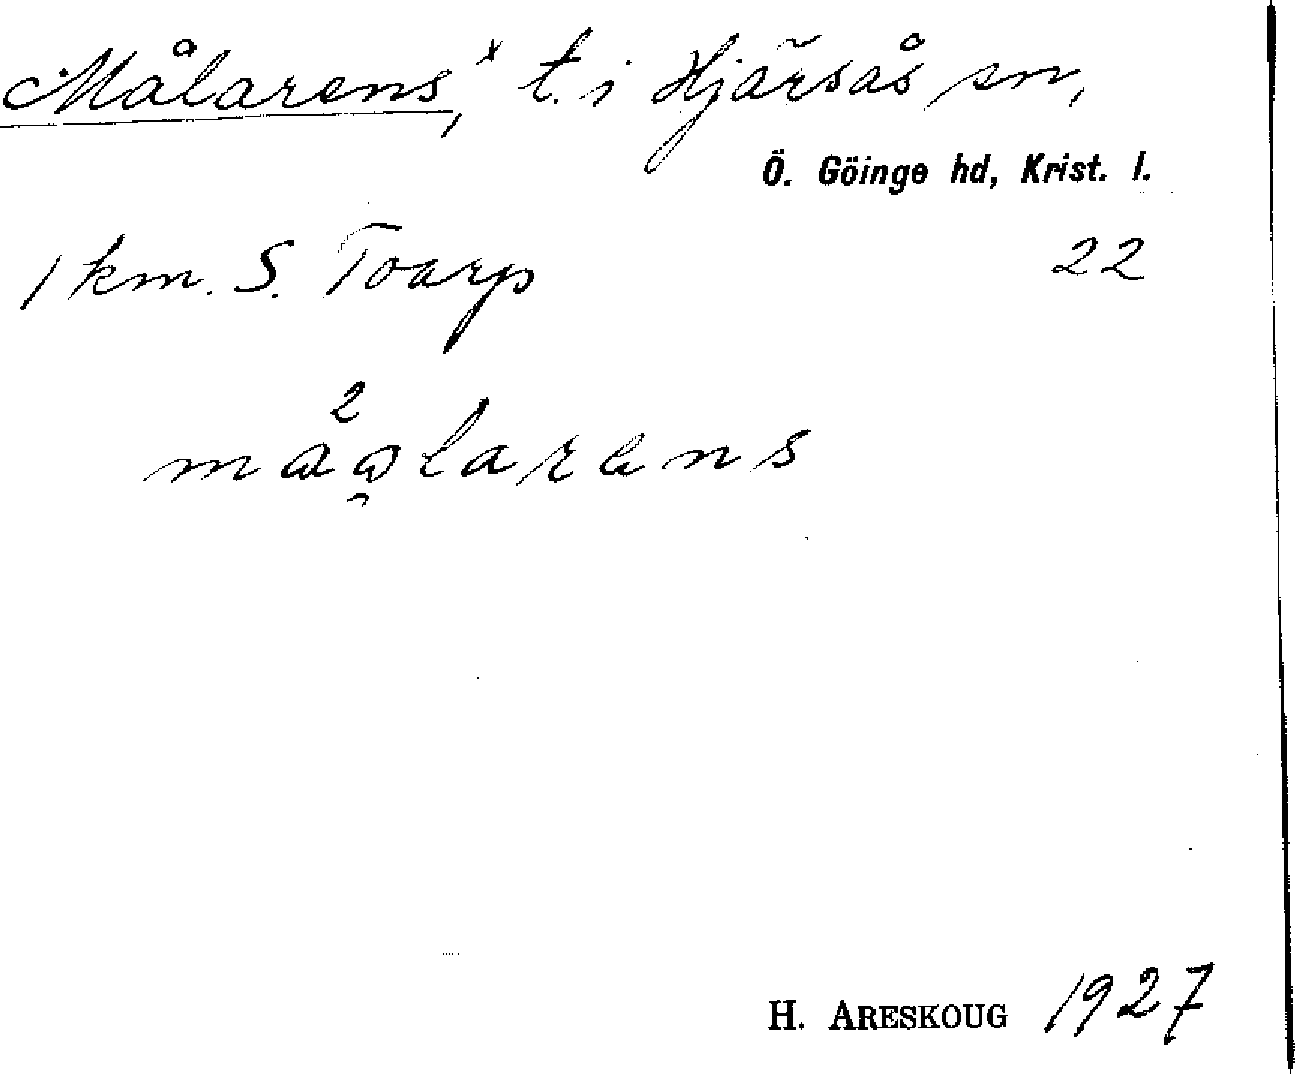 Målarens,ˣ t. i Hjärsås sn,
Ö. Göinge hd, Krist. l.
1 km. S. Toarp 22
2
H. ARESKOUG 1927